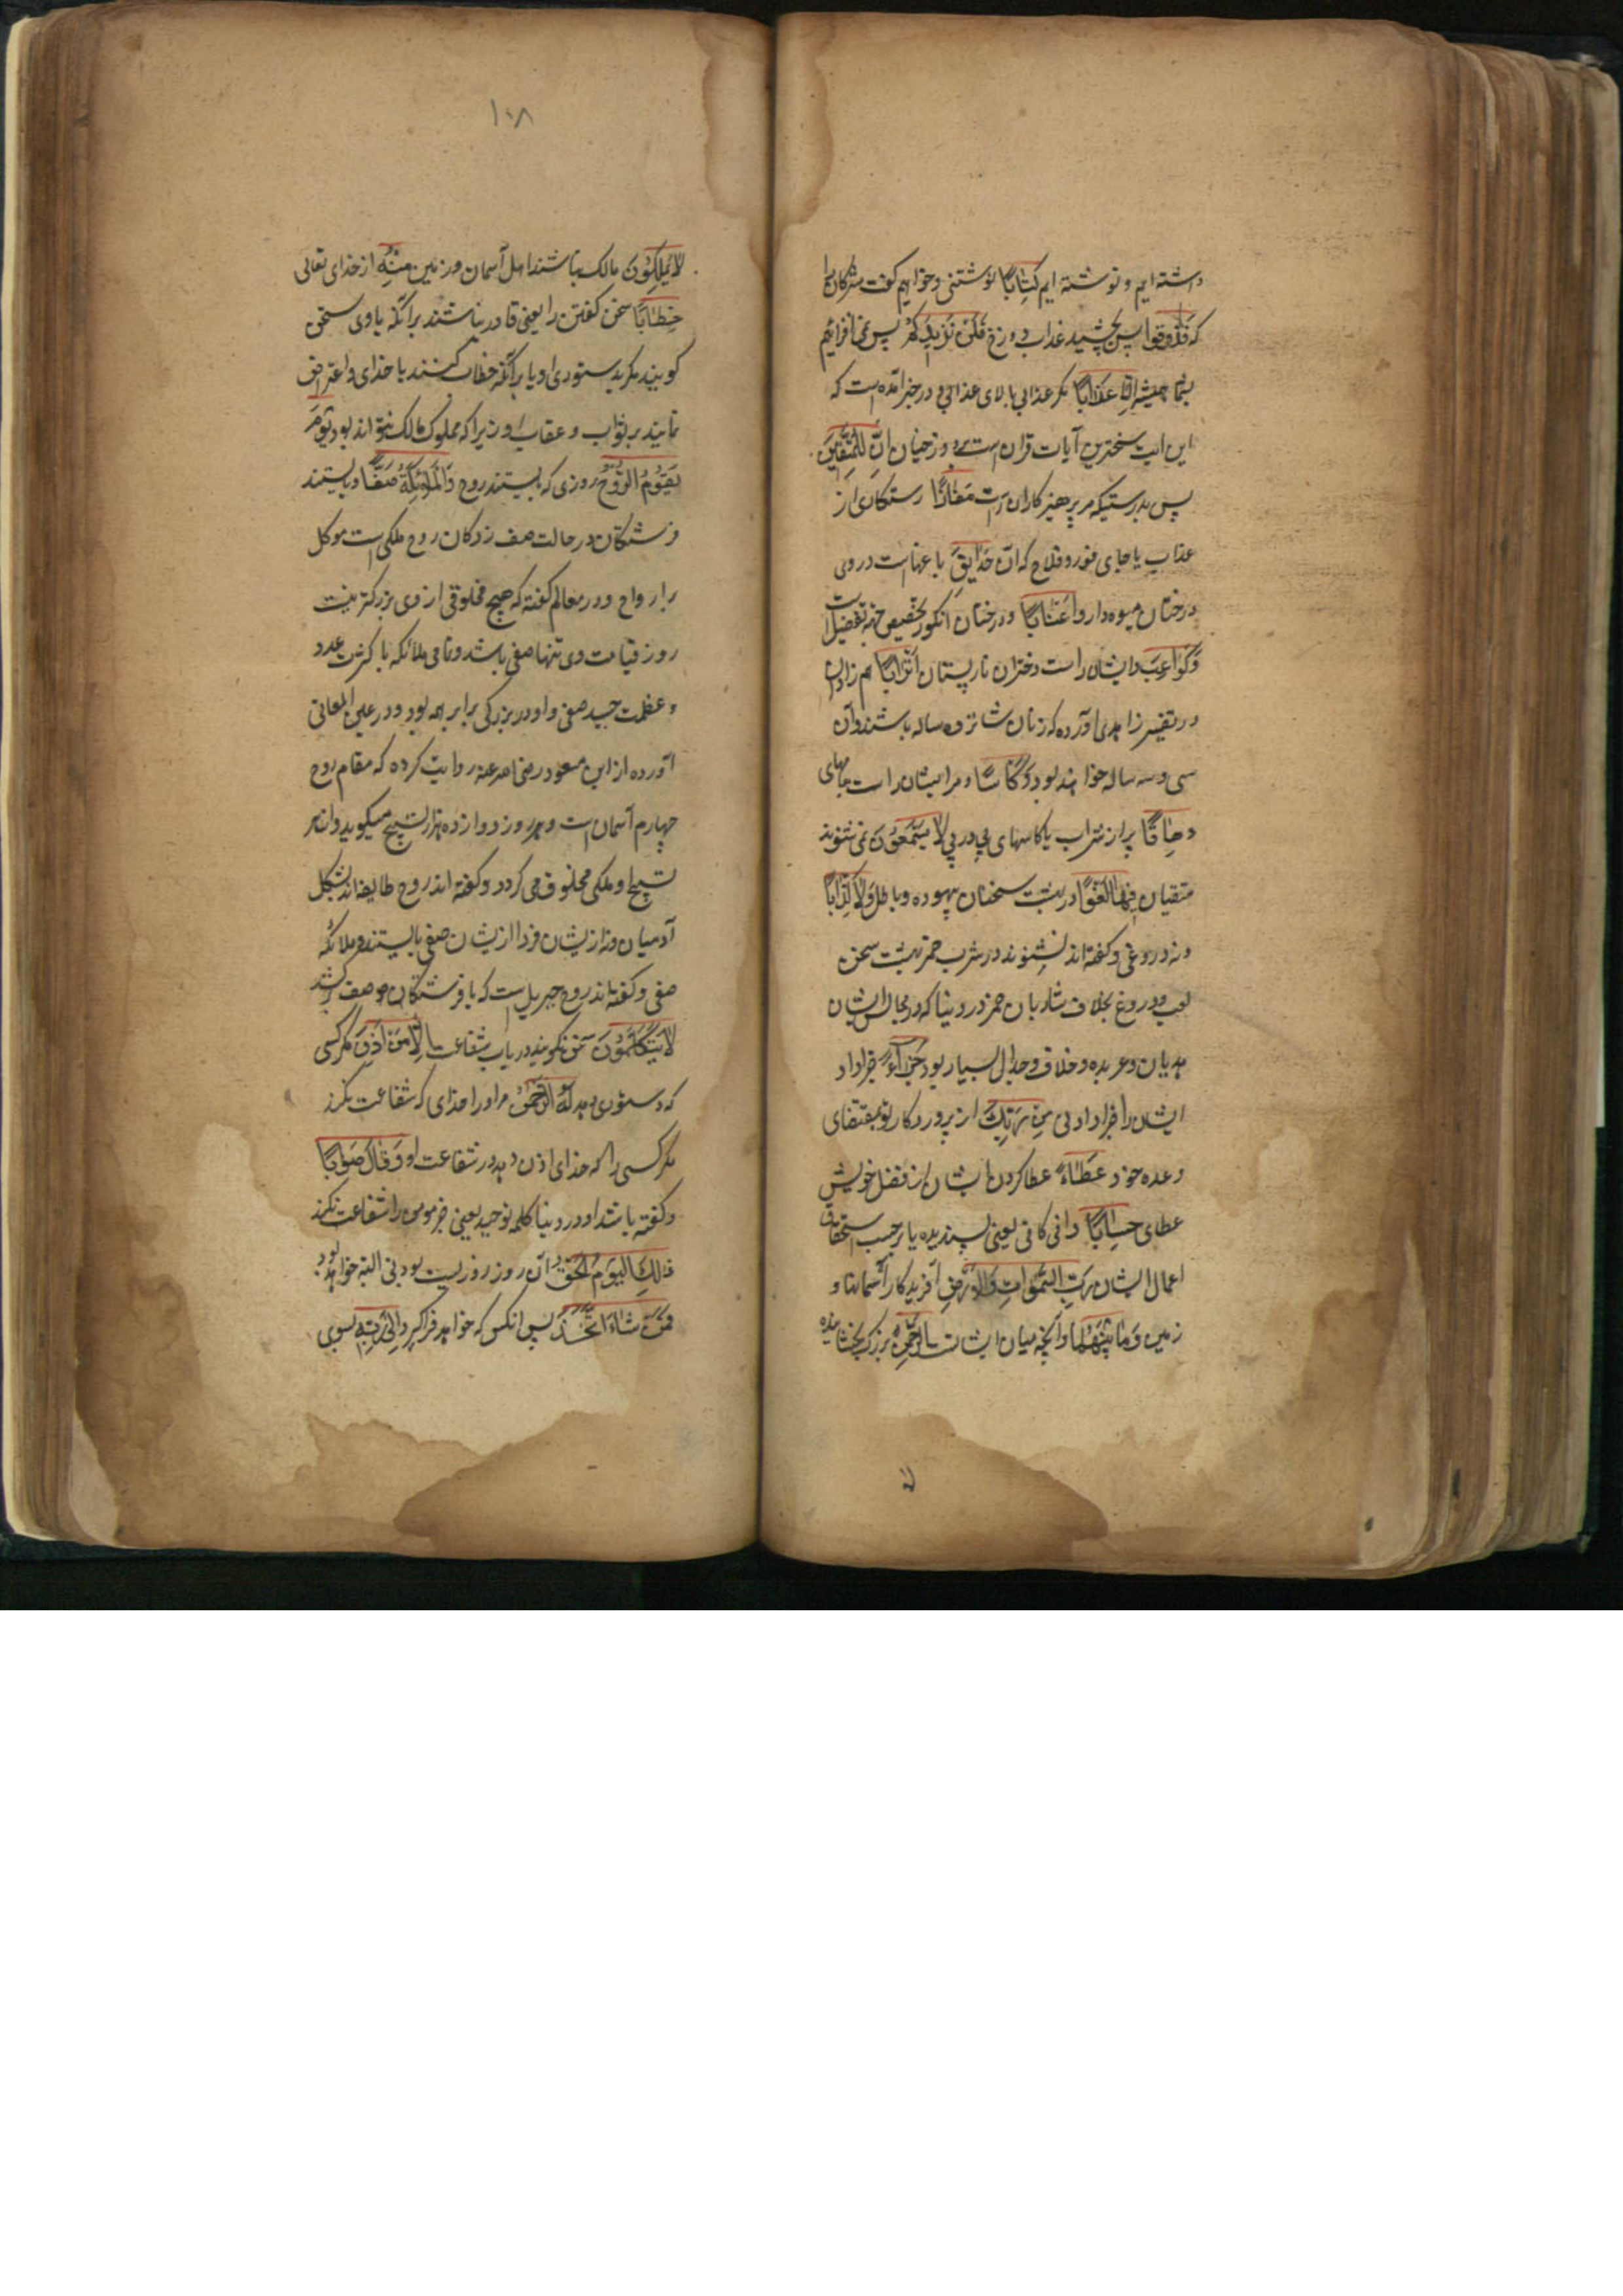 داشته ایم و نوشته ایم کِتَابًا نوشتنی و خواهیم گفت مشرکان را
که فَذُوقُوا پس بچشید عذاب دوزخ فَلَنْ نَزِیدَکُمْ پس نمی افزائیم
شما همیشه اِلَّا عَذَابًا مگر عذابی بالای عذابی و در خبر آمده است که
این آیت سختترین آیات قرآن است بر دوزخیان اِنَّ لِلْمُتَّقِینَ
پس بدرستیکه مر پرهیزکاران راست مَفَازًا رستکاری از
عذاب یا جای فوز و فلاح که آن حَدَایِقَ باغهاست در وی
درختان میوه دار وَاَعْنَابًا و درختان انکور تخصیص جهة تفضیل است
وَکَوَاعِبَ و ایشان راست دختران نارپستان اَتْرَابًا هم زادان
در تفسیر زاهدی آورده که زنان شانزده ساله باشند و آن
سی و سه ساله خواهند بود وَکَاْسًا و مر ایشان راست جامهای
دِهَاقًا پر از شراب یا کاسهای پی در پی لَا یَسْمَعُونَ نمی شنوند
متقیان فِیهَا لَغْوًا در بهشت سخنان بیهوده و باطل وَلَا کِذَّابًا
و نه دروغی و کفته اند نشنوند در شرب خمر بهشت سخن
لعب و دروغ بخلاف شاربان خمر در دنیا که در مجالس ایشان
هذیان و عربده و خلاف و جدال بسیار بود جَزَاءً جزا داد
ایشان را جزا دادنی مِنْ رَبِّکَ از پروردکار تو بمقتضای
وعده خود عَطَاءً عطا کردن ایشان از فضل خویش
عطای حِسَابًا وافی کافی یعنی پسندیده یا برحسب استحقاق
اعمال ایشان رَبِّ السَّمٰوَاتِ وَالْاَرْضِ آفریدکار آسمانها و
زمین وَمَا بَیْنَهُمَا و آنچه میان ایشانست الرَّحْمٰنِ بزرک بخشاینده
۱۰۸
لَا یَمْلِکُونَ مالک نباشند اهل آسمان و زمین مِنْهُ از خدای تعالی
خِطَابًا سخن کفتن را یعنی قادر نباشند برآنکه با وی سخن
کویند مکر بدستوری او یا برآنکه خطاب کنند با خدای و اعتراض
نمایند بر ثواب و عقاب او زیرا که مملوک مالک نتواند بود یَوْمَ
یَقُومُ الرُّوحُ روزی که بایستند روح وَالْمَلٰئِکَةُ صَفًّا و بایستند
فرشتکان در حالت صف زدکان روح ملکی است موکل
بر ارواح و در معالم کفته که هیچ مخلوقی از وی بزرکتر نیست
روز قیامت وی تنها صفی باشد و تمامی ملائکه با کثرت عدد
و عظمت جسد صفی و او در بزرکی برابر همه بود و در عین المعانی
آورده از ابن مسعود رضی الله عنه روایت کرده که مقام روح
چهارم آسمان است و هر روز دوازده هزار تسبیح میکوید و از هر
تسبیح او ملکی مخلوق می کردد و کفته اند روح طایفه اند بشکل
آدمیان و نه از یشان فردا ازیشان صفی بایستند و ملائکه
صفی و کفته اند روح جبریل است که با فرشتکان در صف باشد
لَا یَتَکَلَّمُونَ سخن نکویند در باب شفاعت اِلَّا مَنْ اَذِنَ مکر کسی
که دستوری دهد لَهُ الرَّحْمٰنُ مر او را خدای که شفاعت بکند
مکر کسی را که خدای اذن دهد در شفاعت او وَقَالَ صَوَابًا
و کفته باشد او در دنیا کلمه توحید یعنی جز مومن را شفاعت نکند
ذٰلِکَ الْیَوْمُ الْحَقُّ آن روز روزیست بودنی البته خواهد بود
فَمَنْ شَاءَ اتَّخَذَ پس آنکس که خواهد فرا کیرد اِلٰی رَبِّهِ بسوی